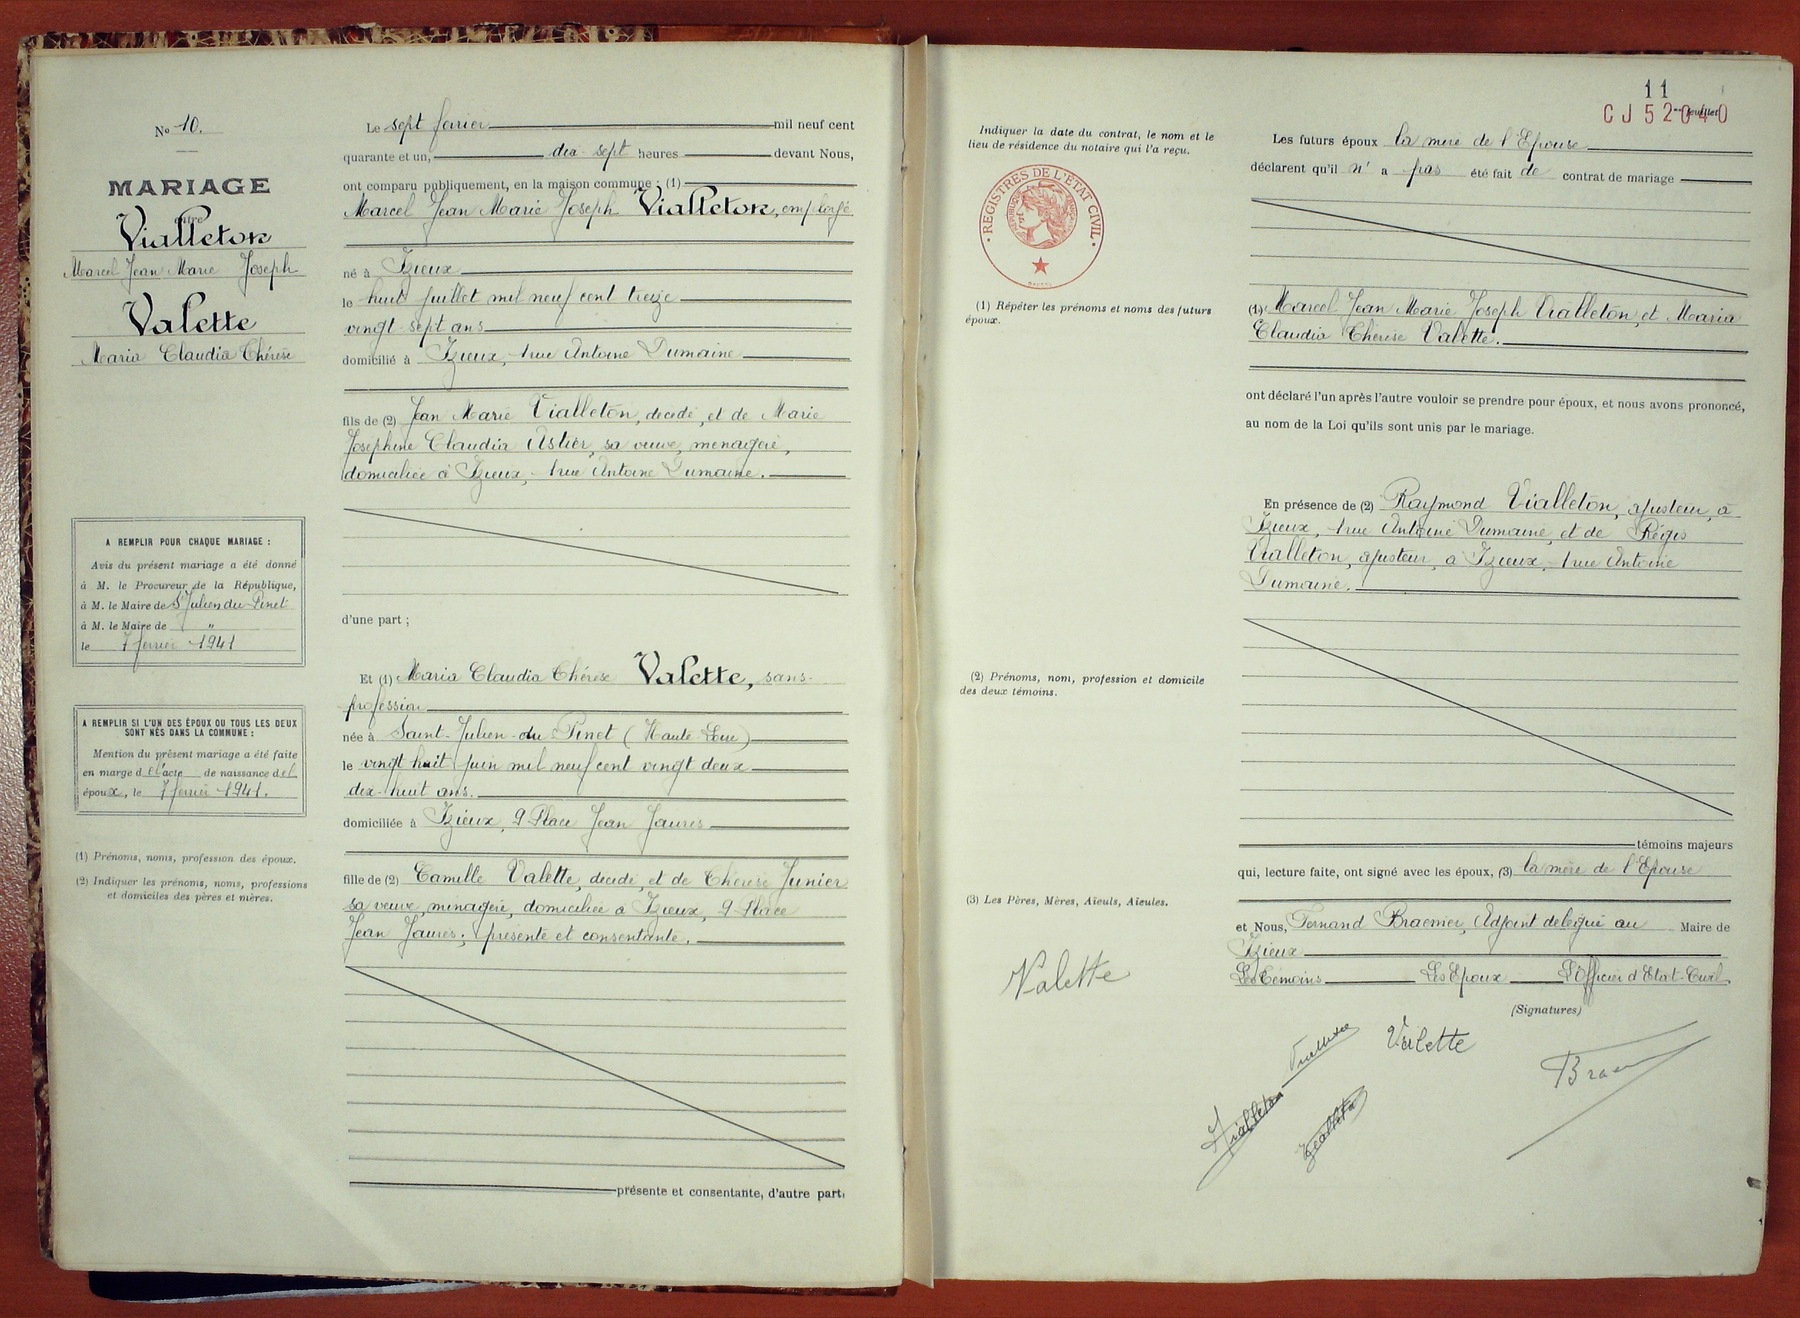 No 10.
MARIAGE
entre
Vialleton
Marcel Jean Marie Joseph
Valette
Maria Claudia Thérèse
A REMPLIR POUR CHAQUE MARIAGE :
Avis du présent mariage a été donné
à M. le Procureur de la République,
à M. le Maire de St Julien du Pinet
à M. le Maire de "
le 7 février 1941
A REMPLIR SI L'UN DES ÉPOUX OU TOUS LES DEUX
SONT NÉS DANS LA COMMUNE :
Mention du présent mariage a été faite
en marge d el'acte de naissance del
époux, le 7 février 1941.
(1) Prénoms, noms, profession des époux.
(2) Indiquer les prénoms, noms, professions
et domiciles des pères et mères.
Le sept février mil neuf cent
quarante et un, dix-sept heures devant Nous,
ont comparu publiquement, en la maison commune : (1)
Marcel Jean Marie Joseph Vialleton, employé
né à Izieux
le huit juillet mil neuf cent treize
vingt-sept ans
domicilié à Izieux, 1 rue Antoine Dumaine
fils de (2) Jean Marie Vialleton, décédé, et de Marie
Joséphine Claudia Astier, sa veuve, ménagère,
domiciliée à Izieux, 1 rue Antoine Dumaine.
d'une part ;
Et (1) Maria Claudia Thérèse Valette, sans-
profession
née à Saint-Julien-du-Pinet (Haute Loire)
le vingt huit juin mil neuf cent vingt deux
dix-huit ans.
domiciliée à Izieux, 9 Place Jean Jaurès
fille de (2) Camille Valette, décédé, et de Thérèse Junier
sa veuve, ménagère, domiciliée à Izieux, 9 Place
Jean Jaurès; présente et consentante.
présente et consentante, d'autre part,
11
me feuillet
CJ52040
Indiquer la date du contrat, le nom et le
lieu de résidence du notaire qui l'a reçu.
REGISTRES DE L'ÉTAT CIVIL
(1) Répéter les prénoms et noms des futurs
époux.
(2) Prénoms, nom, profession et domicile
des deux témoins.
(3) Les Pères, Mères, Aïeuls, Aïeules.
Les futurs époux la mère de l'Epouse
déclarent qu'il n' a pas été fait de contrat de mariage
(1) Marcel Jean Marie Joseph Vialleton, et Maria
Claudia Thérèse Valette.
ont déclaré l'un après l'autre vouloir se prendre pour époux, et nous avons prononcé,
au nom de la Loi qu'ils sont unis par le mariage.
En présence de (2) Raymond Vialleton, ajusteur, à
Izieux, 1 rue Antoine Dumaine, et de Régis
Vialleton, ajusteur, à Izieux, 1 rue Antoine
Dumaine.
témoins majeurs
qui, lecture faite, ont signé avec les époux, (3) la mère de l'Epouse
et Nous, Fernand Braemer, Adjoint délégué au Maire de
Izieux
Les Témoins Les Epoux L'Officier d'Etat-Civil,
(Signatures)
Valette
Vialleton
Valette
Vialleton
Vialleton